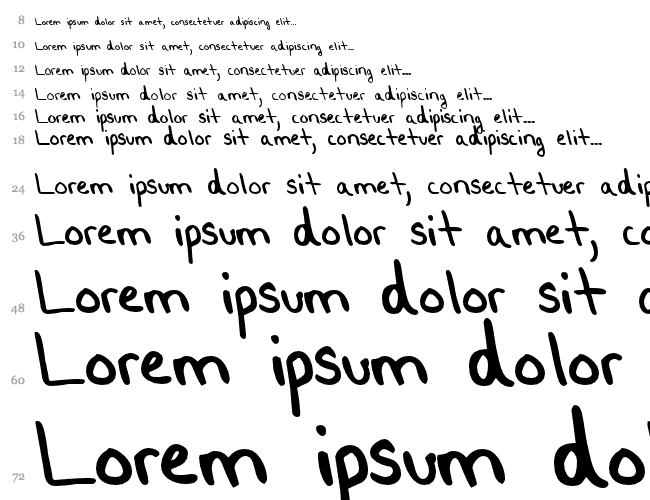 8 Lorem ipsum dolor sit amet, consectetuer adipiscing elit...
10 Lorem ipsum dolor sit amet, consectetuer adipiscing elit...
12 Lorem ipsum dolor sit amet, consectetuer adipiscing elit...
14 Lorem ipsum dolor sit amet, consectetuer adipiscing elit...
16 Lorem ipsum dolor sit amet, consectetuer adipiscing elit...
18 Lorem ipsum dolor sit amet, consectetuer adipiscing elit...
24 Lorem ipsum dolor sit amet, consectetuer adip
36 Lorem ipsum dolor sit amet, co
48 Lorem ipsum dolor sit a
60 Lorem ipsum dolor
72 Lorem ipsum dol